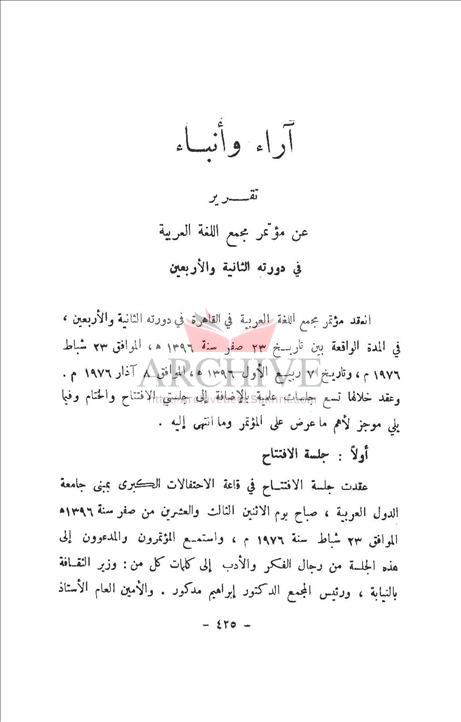 آراء وأنباء
تقرير
عن مؤتمر مجمع اللغة العربية
في دورته الثانية والأربعين
انعقد مؤتمر مجمع اللغة العربية في القاهرة في دورته الثانية والأربعين ،
في المدة الواقعة بين تاريخ ٢٣ صفر سنة ١٣٩٦ هـ ، الموافق ٢٣ شباط
١٩٧٦ م ، وتاريخ ٧ ربيع الأول ١٣٩٦ هـ ، الموافق ٨ آذار ١٩٧٦ م .
ARCHIVE
وعقد خلالها تسع جلسات علمية بالإضافة إلى جلستي الافتتاح والختام وفيما
يلي موجز لأهم ما عرض على المؤتمر وما انتهى إليه .
أولاً : جلسة الافتتاح
عقدت جلسة الافتتاح في قاعة الاحتفالات الكبرى بمبنى جامعة
الدول العربية ، صباح يوم الاثنين الثالث والعشرين من صفر سنة ١٣٩٦هـ
الموافق ٢٣ شباط سنة ١٩٧٦ م ، واستمع المؤتمرون والمدعوون إلى
هذه الجلسة من رجال الفكر والأدب إلى كلمات كل من : وزير الثقافة
بالنيابة ، ورئيس المجمع الدكتور إبراهيم مدكور . والأمين العام الأستاذ
- ٤٢٥ -